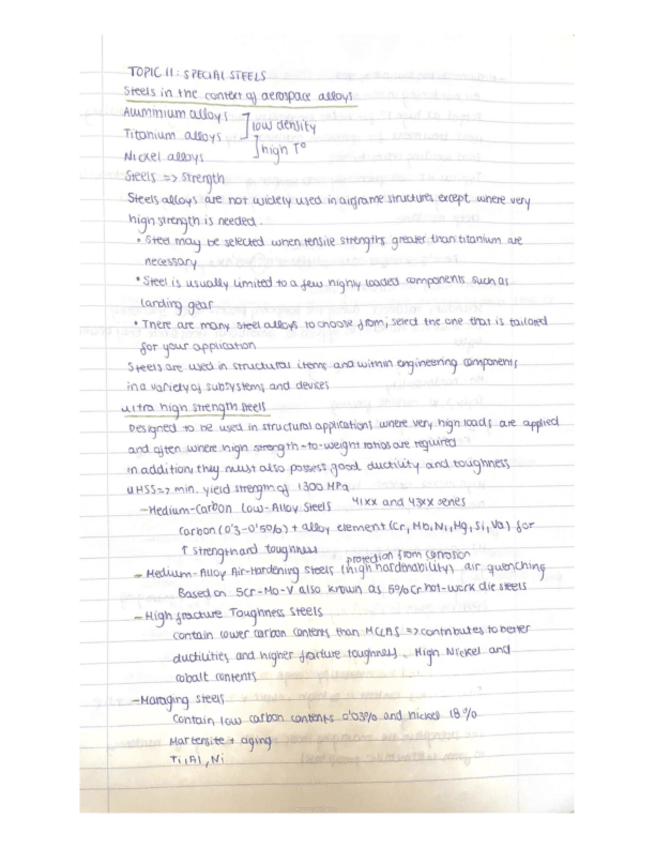 TOPIC 11: SPECIAL STEELS
Steels in the context of aerospace alloys
Aluminium alloys ] low density
Titanium alloys ] high Tº
Nickel alloys
Steels => Strength
Steels alloys are not widely used in airframe structures except where very
high strength is needed.
• Steel may be selected when tensile strengths greater than titanium are
necessary
• Steel is usually limited to a few highly loaded components such as
landing gear
• There are many steel alloys to choose from, select the one that is tailored
for your application
Steels are used in structural items and within engineering components
in a variety of subsystems and devices
Ultra high strength steels
Designed to be used in structural applications where very high loads are applied
and often where high strength-to-weight ratios are required
in addition, they must also possess good ductility and toughness
UHSS => min. yield strength of 1300 MPa
- Medium-Carbon Low-Alloy Steels 41xx and 43xx series
Carbon (0'3-0'5%) + alloy element (Cr, Mb, Ni, Mg, Si, Va) for
↑ strength and toughness
protection from corrosion
- Medium-Alloy Air-Hardening Steels (high hardenability) air quenching
Based on 5Cr-Mo-V also known as 5% Cr hot-work die steels
- High fracture Toughness Steels
contain lower carbon contents than MCLAS => contributes to better
ductilities and higher fracture toughness. High Nickel and
cobalt contents
- Maraging steels
Contain low carbon contents 0'03% and nickel 18%
Martensite + aging
Ti, Al, Ni